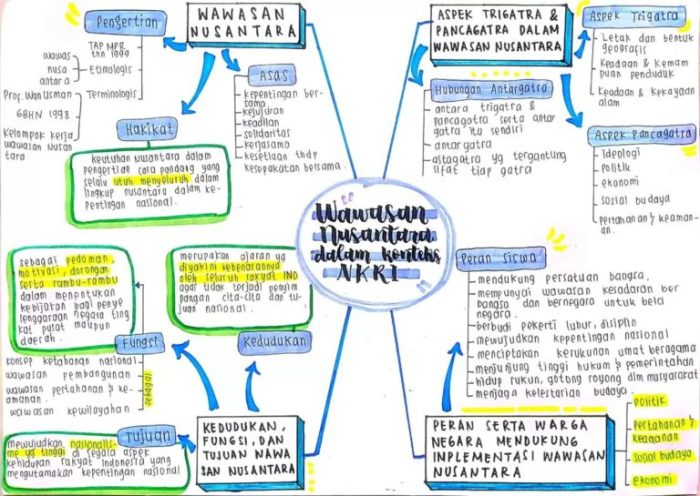 Wawasan
Nusantara
dalam konteks
NKRI
WAWASAN
NUSANTARA
Pengertian
TAP MPR
thn 1999
wawas
nusa
antara
Etimologis
Prof. Wan Usman
Terminologis
GBHN 1998
Kelompok kerja
wawasan Nusan
tara
Asas
kepentingan ber-
sama
kejujuran
keadilan
solidaritas
kerjasama
kesetiaan thdp
kesepakatan bersama.
Hakikat
keutuhan Nusantara dalam
pengertian cara pandang yang
selalu utuh menyeluruh dalam
lingkup nusantara dalam ke-
pentingan nasional.
ASPEK TRIGATRA &
PANCAGATRA DALAM
WAWASAN NUSANTARA
Aspek Trigatra
Letak dan bentuk
geografis
Keadaan & Kemam
puan penduduk
Keadaan & kekayaan
alam
Hubungan Antargatra
antara trigatra &
pancagatra serta antar
gatra itu sendiri
antar gatra
astagatra yg tergantung
sifat tiap gatra
Aspek Pancagatra
ideologi
politik
ekonomi
sosial budaya
pertahanan & keaman-
an.
sebagai pedoman,
motivasi, dorongan
serta rambu-rambu
dalam menentukan
kebijakan bagi penye
lenggaraan negara ting
kat pusat maupun
daerah.
Fungsi
konsep ketahanan nasional
wawasan pembangunan
wawasan pertahanan & ke-
amanan.
wawasan kewilayahan
sebagai
merupakan ajaran yg
diyakini kebenarannya
oleh seluruh rakyat IND
agar tidak terjadi penyim
pangan cita-cita dan tu-
juan nasional.
Kedudukan
Tujuan
mewujudkan nasionalis-
me yg tinggi di segala aspek
kehidupan rakyat indonesia yang
mengutamakan kepentingan nasional
KEDUDUKAN,
FUNGSI, DAN
TUJUAN WAWA
SAN NUSANTARA
Peran Siswa
mendukung persatuan bangsa.
mempunyai wawasan kesadaran ber
bangsa dan bernegara untuk bela
negara.
berbudi pekerti luhur, disiplin
mewujudkan kepentingan nasional
menciptakan kerukunan umat beragama
menjunjung tinggi hukum & pemerintahan
hidup rukun, gotong royong dlm masyarakat
menjaga kelestarian budaya.
PERAN SERTA WARGA
NEGARA MENDUKUNG
INPLEMENTASI WAWASAN
NUSANTARA
politik
Pertahanan &
keamanan
sosial budaya
ekonomi